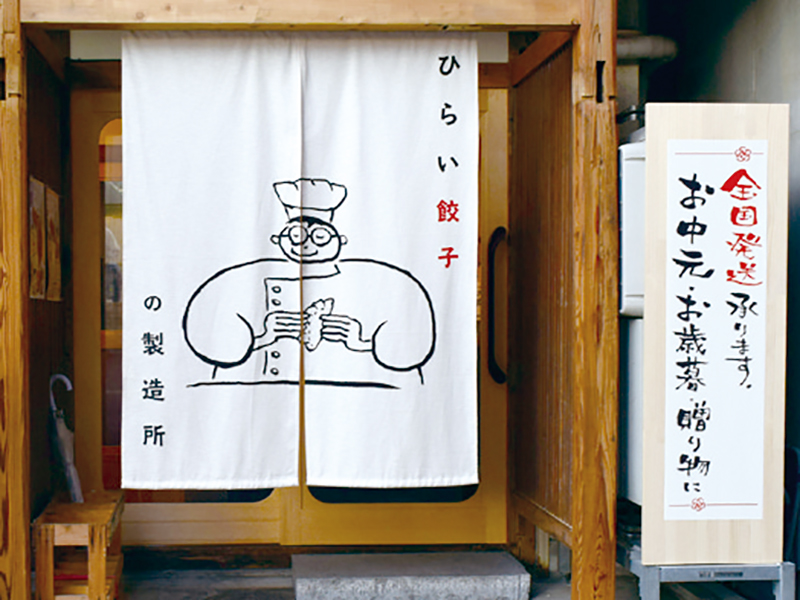 ひらい餃子
の製造所
全国発送承ります。
お中元・お歳暮・贈り物に